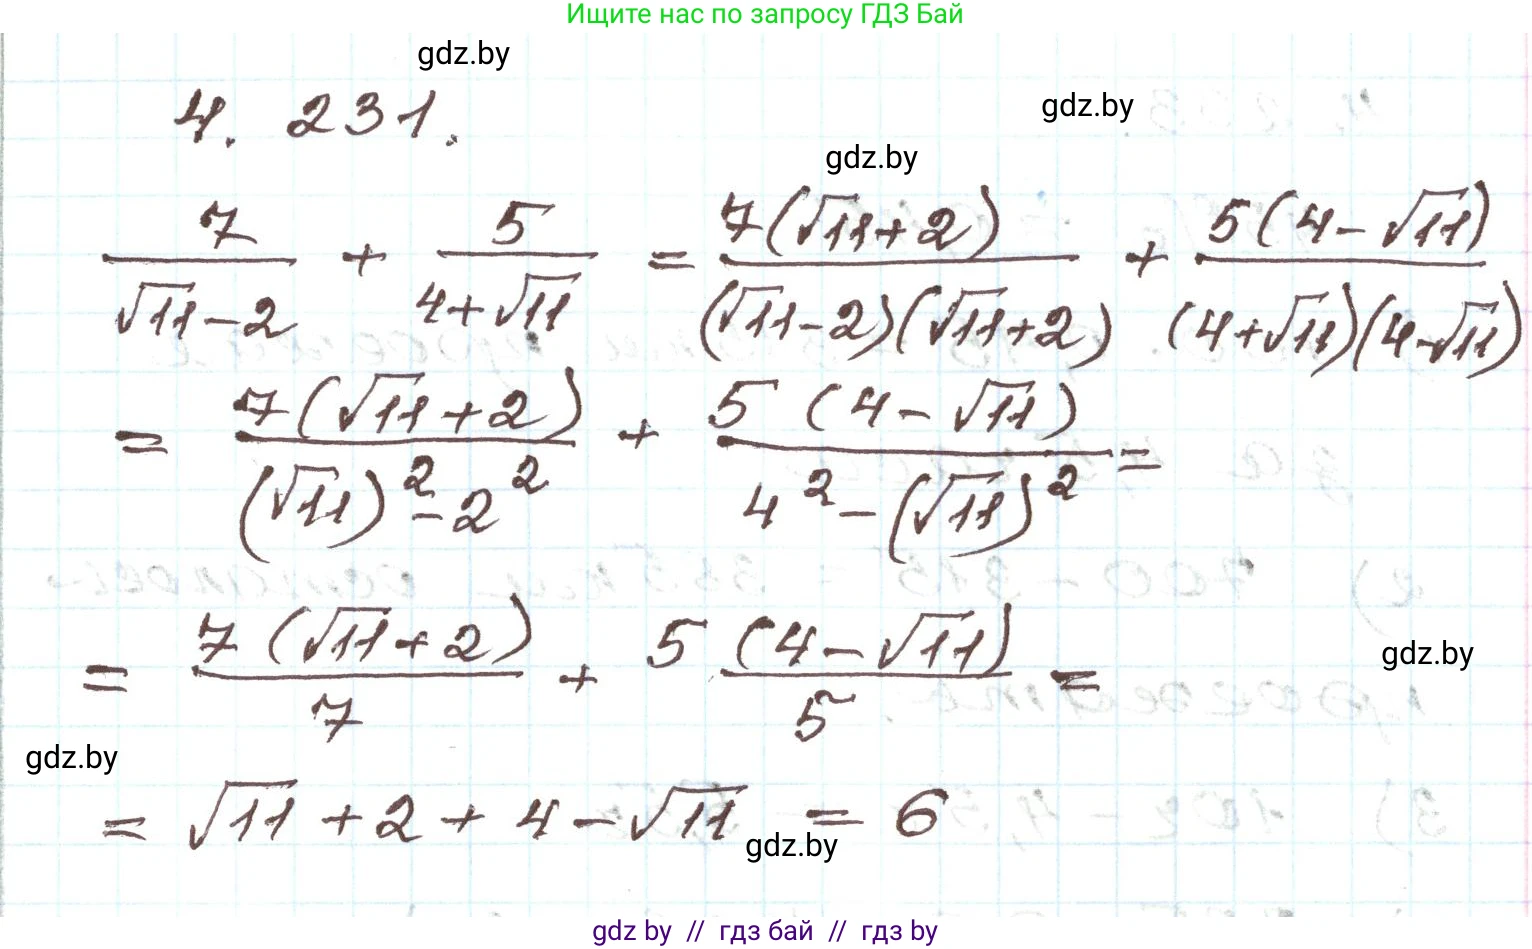 Ищите нас по запросу ГДЗ Бай
gdz.by
gdz.by
4. 231.
gdz.by
7/(√11-2) + 5/(4+√11) = 7(√11+2)/((√11-2)(√11+2)) + 5(4-√11)/((4+√11)(4-√11))
= 7(√11+2)/((√11)²-2²) + 5(4-√11)/(4²-(√11)²) =
= 7(√11+2)/7 + 5(4-√11)/5 =
gdz.by
gdz.by
= √11 + 2 + 4 - √11 = 6
gdz.by
gdz by // гдз бай // гдз by